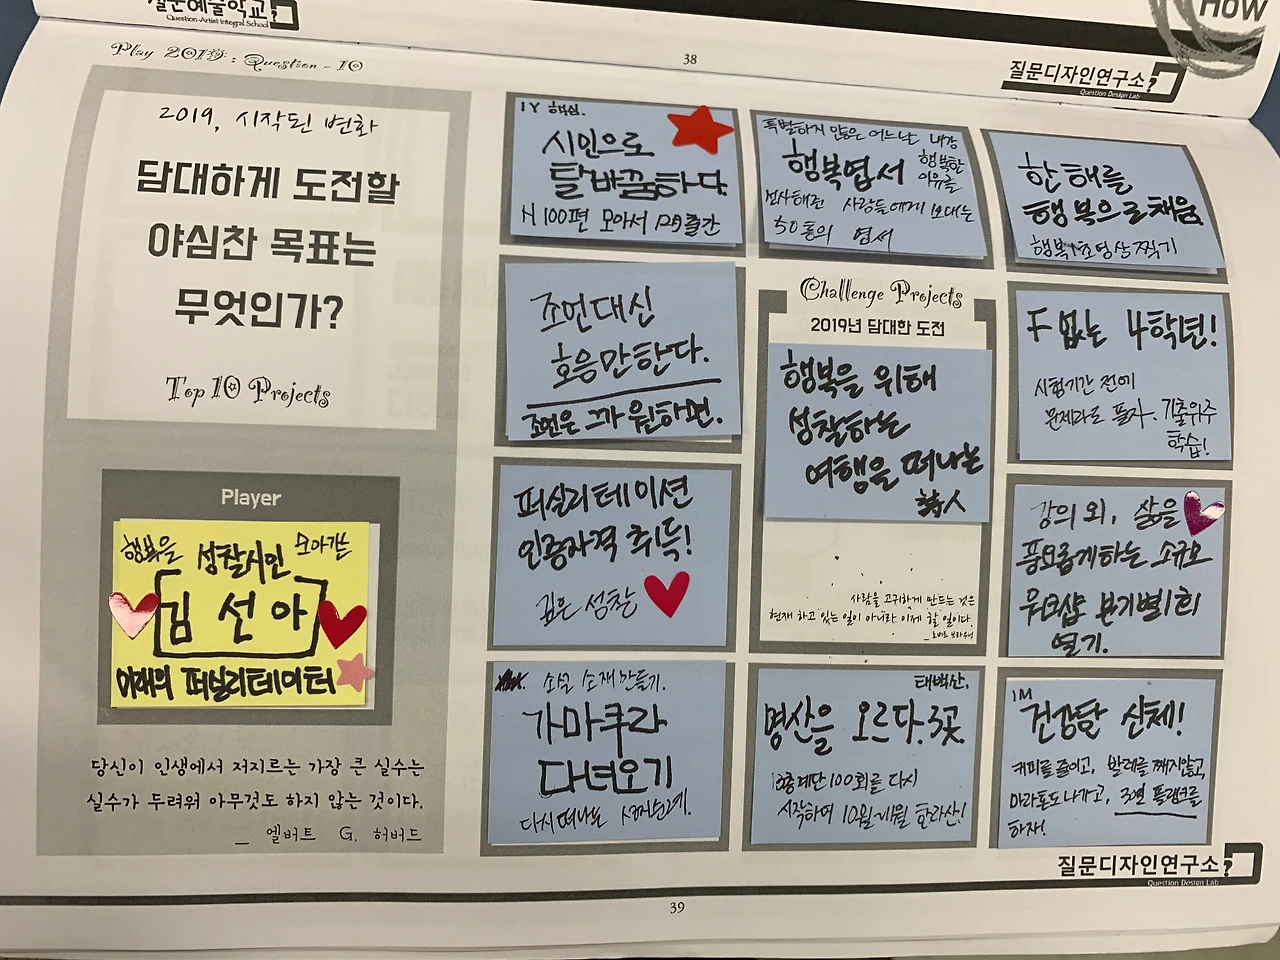 질문예술학교
Question-Artist Integral School
HOW
38
Play 2019 : Question - 10
질문디자인연구소
Question Design Lab
2019, 시작된 변화
담대하게 도전할
야심찬 목표는
무엇인가?
Top 10 Projects
Player
행복을 성찰시인 모아가는
김선아
미래의 퍼실리테이터
당신이 인생에서 저지르는 가장 큰 실수는
실수가 두려워 아무것도 하지 않는 것이다.
_ 엘버트 G. 허버드
1Y 핵심.
시인으로
탈바꿈하다
시 100편 모아서 12월 출간
특별하지 않은 어느날 내가
행복엽서 행복한
이유를
선사해준 사람들에게 보내는
50통의 엽서
한 해를
행복으로 채움
행복 1초 영상 찍기
조언대신
호응만한다.
조언은 그가 원하면.
Challenge Projects
2019년 담대한 도전
행복을 위해
성찰하는
여행을 떠나는
詩人
사람을 고귀하게 만드는 것은
현재 하고 있는 일이 아니라 이제 할 일이다.
_ 로버트 브라우닝
F 없는 4학년!
시험기간 전에
문제라도 풀자. 기출위주
학습!
퍼실리테이션
인증자격 취득!
깊은 성찰
강의 외, 삶을
풍요롭게하는 소규모
워크샵 분기별 1회
열기.
소설 소재 만들기.
가마쿠라
다녀오기
다시 떠나는
태백산,
명산을 오르다. 3곳.
13층계단 100회를 다시
시작하며 10월 한라산!
1M
건강한 신체!
커피를 줄이고, 발레를 째지않고,
마라톤도 나가고, 3분 플랭크를
하자!
질문디자인연구소
Question Design Lab
39